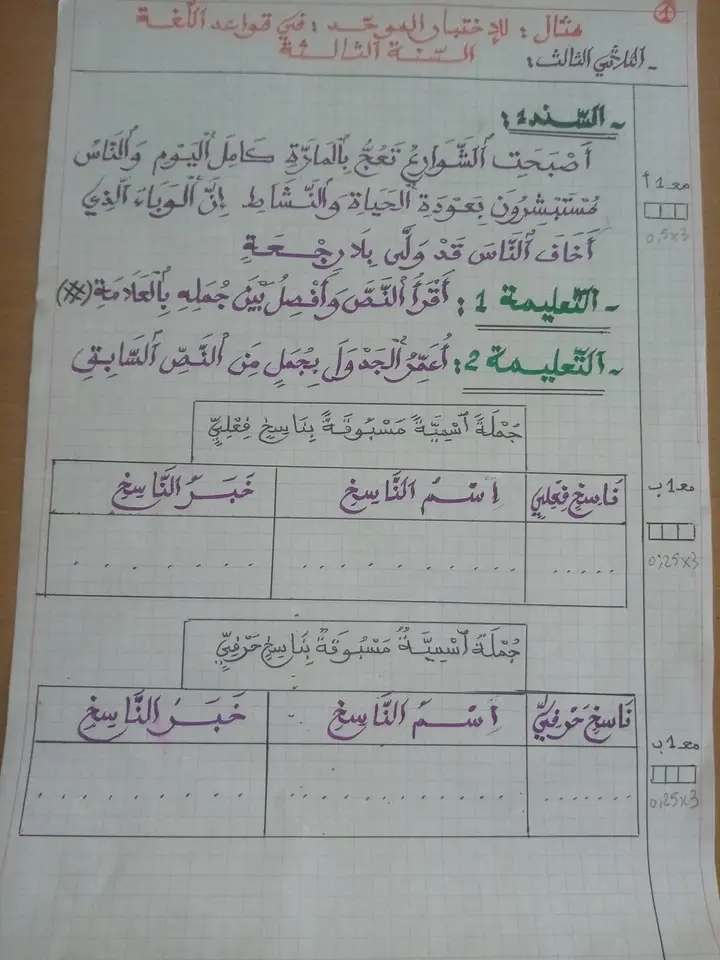 1
مثال : للإختبار الموحّد : في قواعد اللّغة
السّنة الثالثة
- الثلاثي الثالث :
- السّند 1 :
أَصْبَحَتِ الشَّوَارِعُ تَعُجُّ بِالمَارَّةِ كَامِلَ اليَوْمِ وَالنَّاسُ
مُسْتَبْشِرُونَ بِعَوْدَةِ الحَيَاةِ وَالنَّشَاطِ إِنَّ الوَبَاءَ الَّذِي
أَخَافَ النَّاسَ قَدْ وَلَّى بِلَا رِجْعَةٍ
- التّعليمة 1 : أَقْرَأُ النَّصَّ وَأَفْصِلُ بَيْنَ جُمَلِهِ بِالعَلَامَةِ (#)
- التّعليمة 2 : أُعَمِّرُ الجَدْوَلَ بِجُمَلٍ مِنَ النَّصِّ السَّابِقِ
جُمْلَةً اسْمِيَّةً مَسْبُوقَةً بِنَاسِخٍ فِعْلِيٍّ
نَاسِخ فِعْلِيّ اِسْمُ النَّاسِخِ خَبَرُ النَّاسِخِ
جُمْلَةٌ اسْمِيَّةٌ مَسْبُوقَةٌ بِنَاسِخٍ حَرْفِيٍّ
نَاسِخ حَرْفِيّ اِسْمُ النَّاسِخِ خَبَرُ النَّاسِخِ
معـ 1 أ
0,5x3
معـ 1 ب
0,25x3
معـ 1 ب
0,25x3